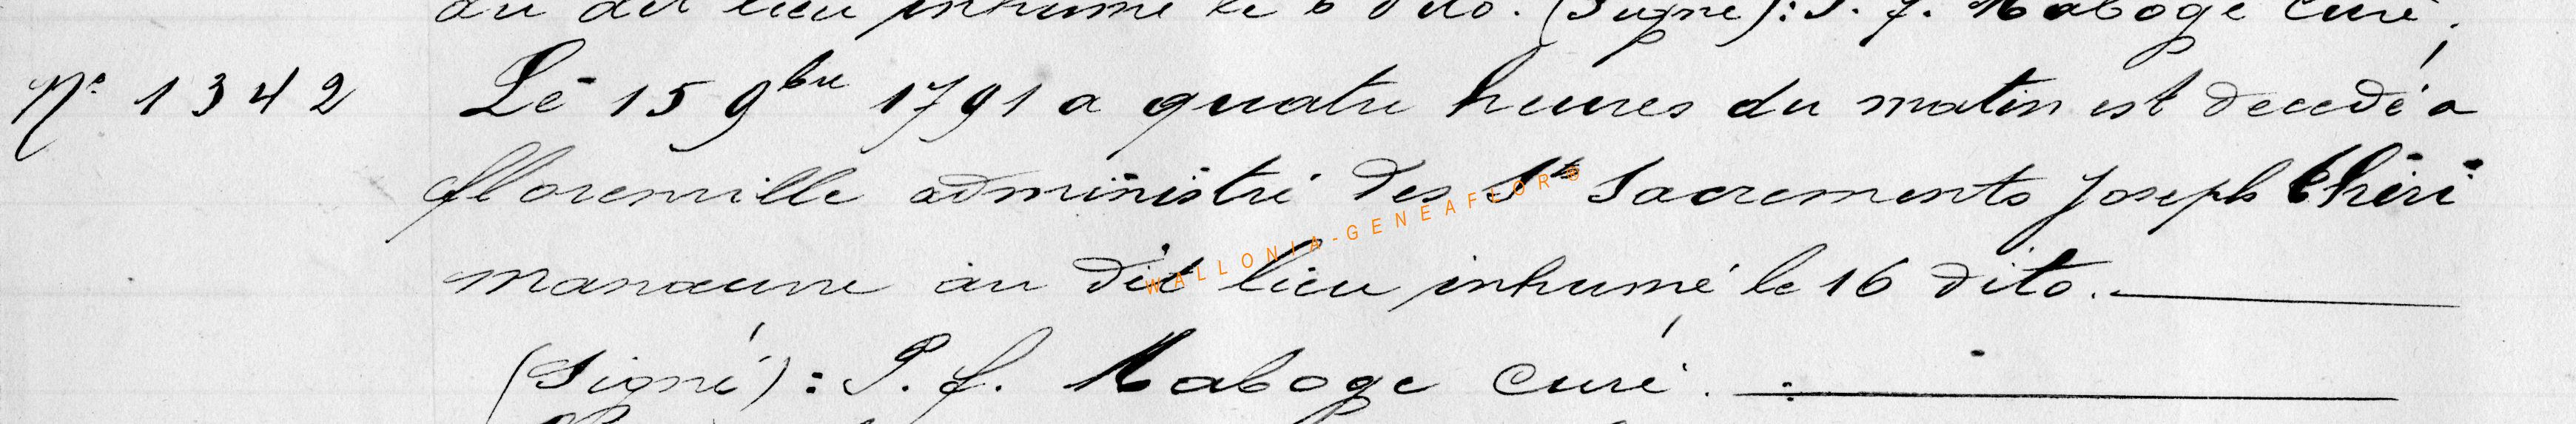 du dit lieu inhumé le 6 dito. (Signé): P. f. Maboge Curé.
N° 1342 Le 15 9bre 1791 a quatre heures du matin est decedé a
florenville administré des Sts Sacrements Joseph Théri
manœuvre au dit lieu inhumé le 16 dito.
WALLONIA-GENEAFLOR®
(Signé): P. f. Maboge Curé.